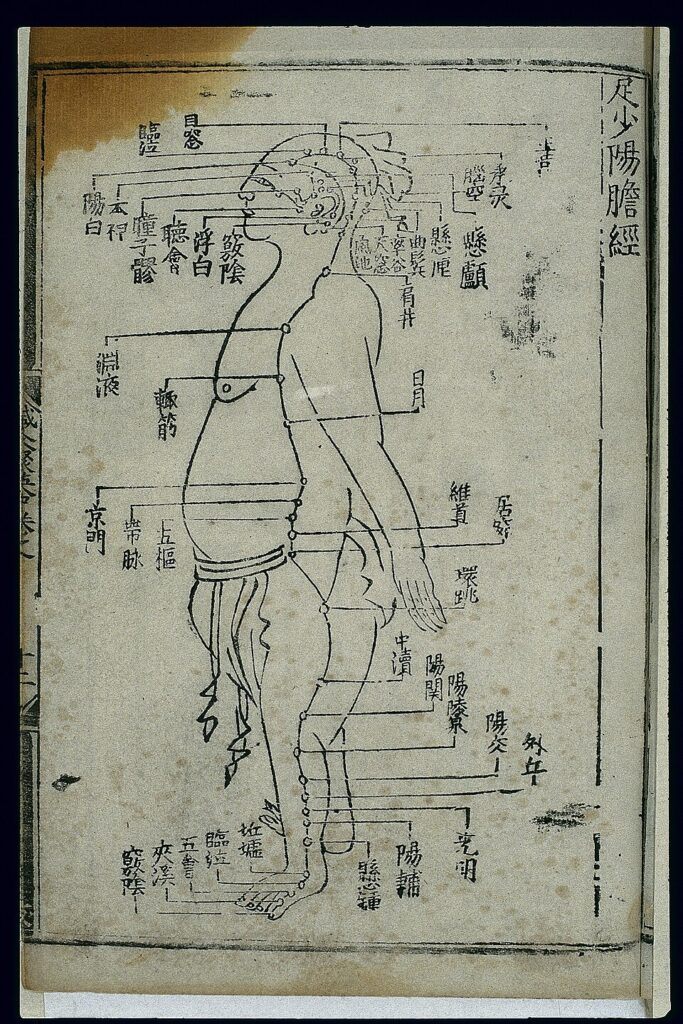 足少陽膽經
目窓
臨泣
正營
承灵
腦空
陽白
本神
瞳子髎
聽會
浮白
竅陰
風池
天窓
率谷
曲鬓
懸厘
懸顱
肩井
淵液
輒筋
日月
京門
帶脉
五樞
維道
居髎
環跳
中瀆
陽関
陽陵泉
陽交
外丘
光明
陽輔
懸鍾
坵墟
臨泣
五會
夾溪
竅陰